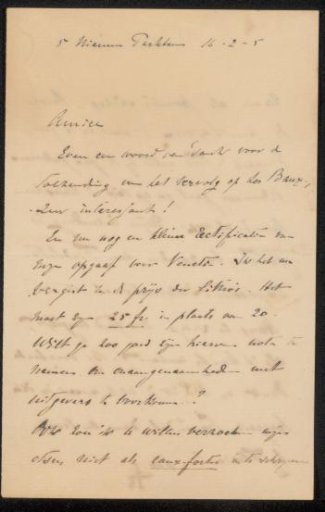 5 Nieuwe Parklaan 16-2-5
Amice
Even een woord van dank voor de
toezending van het vervolg op Les Baux,
Zeer interessant!
En nu nog een kleine rectificatie van
mijn opgaaf voor Veneto. Ik heb me
vergist in de prijs der litho's. Het
moet zijn 25 fr. in plaats van 20.
Wilt ge zoo goed zijn hiervan nota te
nemen om onaangenaamheden met
uitgevers te voorkomen?
Ook zou ik u willen verzoeken mijn
etsen niet als eaux-fortes